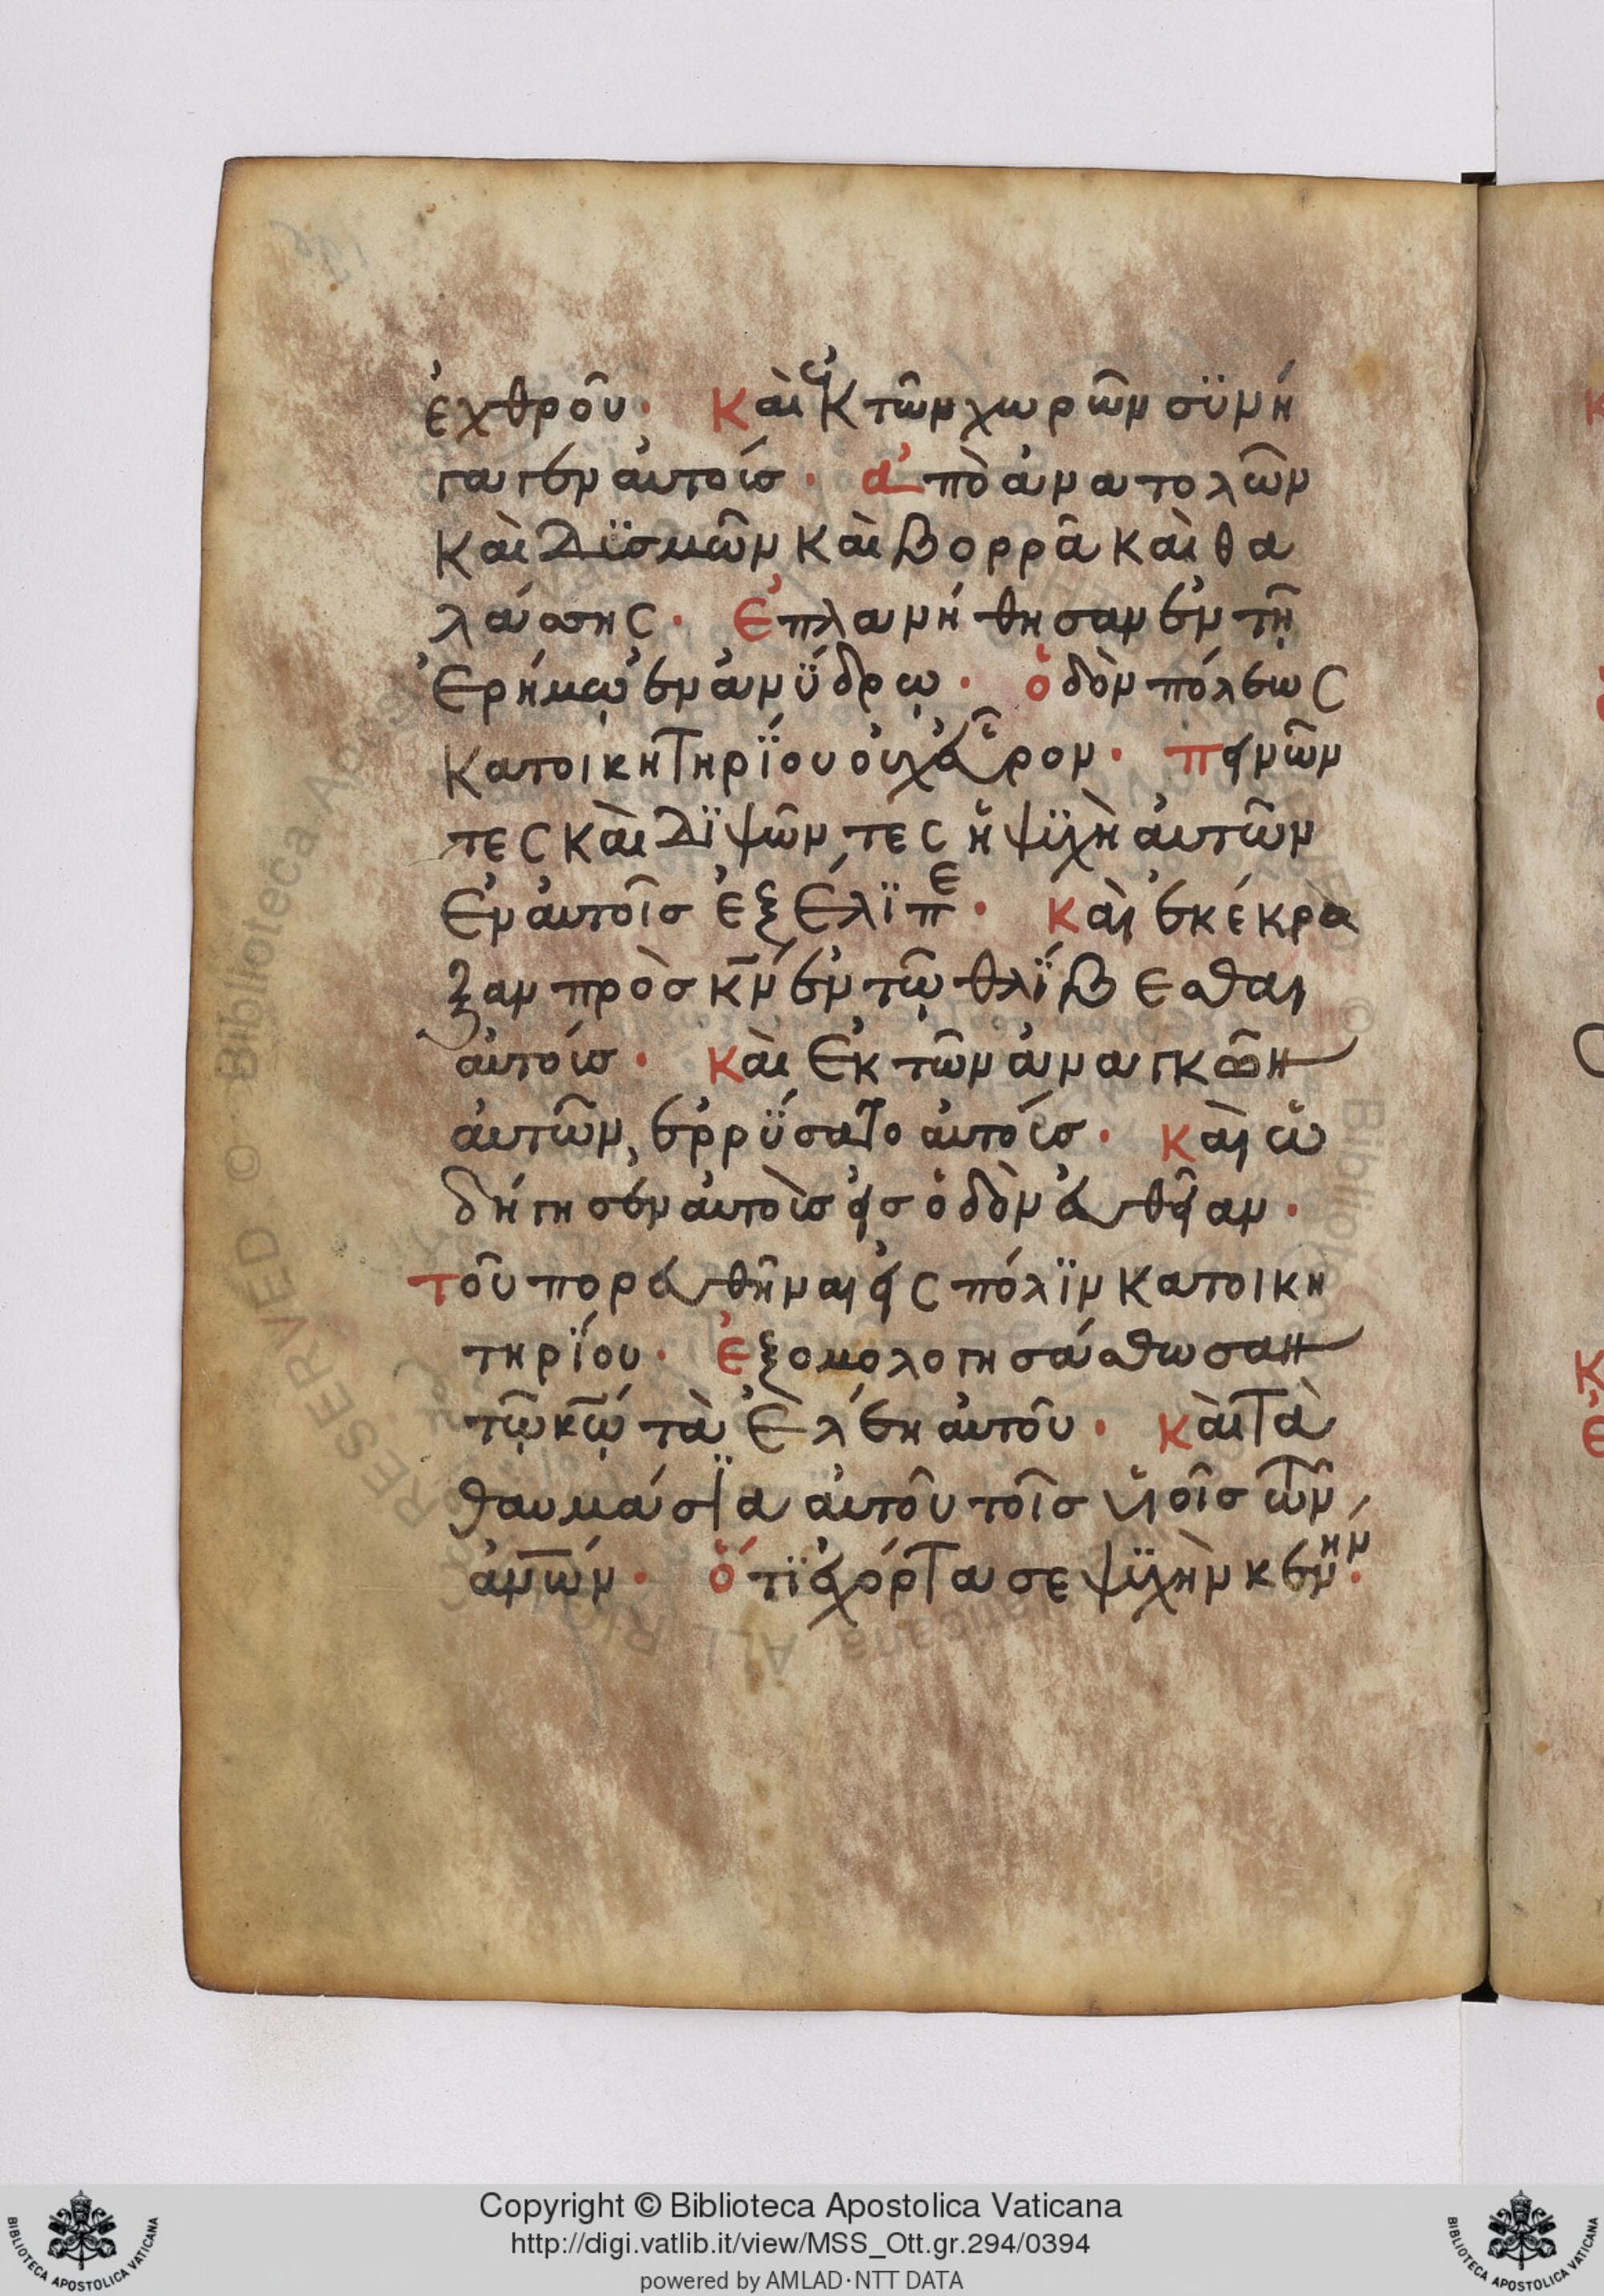 ἐχθροῦ· Καὶ ἐκ τῶν χωρῶν σϋνή
γαγεν ἀυτοίσ· ἀπὸ ἀνατολῶν
Καὶ Δϊσμῶν Καὶ Βορρᾶ Καὶ θα
λάσσης· Ἐπλανήθησαν ἐν τῆ
Ἐρήμω ἐν ἀνΰδρω· ὁδὸν πόλεως
Κατοικητηρΐου ὀυχ ἑῦρον· πεινῶν
τες Καὶ Δϊψῶντες ἡ ψϋχὴ ἀυτῶν
Ἐν ἀυτοῖσ ἐξἘλϊπε· Καὶ ἐκέκρα
ξαν πρὸσ κν ἐν τῶ θλΐβεσθαι
ἀυτοίσ· Καὶ Ἐκ τῶν ἀναγκῶν
ἀυτῶν, ἐρρΰσατο ἀυτοίσ· Καὶ ὡ
δήγησεν ἀυτοὶσ εἰσ ὁδὸν ἐυθεῖαν·
Τοῦ πορευθῆναι εἰς πόλϊν Κατοικη
τηρΐου· Ἐξομολογησάσθωσαν
τῶ κω τὰ Ἐλέη ἀυτοῦ· Καὶ τὰ
θαυμάσϊα ἀυτοῦ τοῖσ ὑιοῖσ τῶν
ἀνων· ὅτϊ ἐχόρτασε ψϋχὴν κενήν·
Copyright © Biblioteca Apostolica Vaticana
http://digi.vatlib.it/view/MSS_Ott.gr.294/0394
powered by AMLAD·NTT DATA
BIBLIOTECA APOSTOLICA VATICANA
BIBLIOTECA APOSTOLICA VATICANA